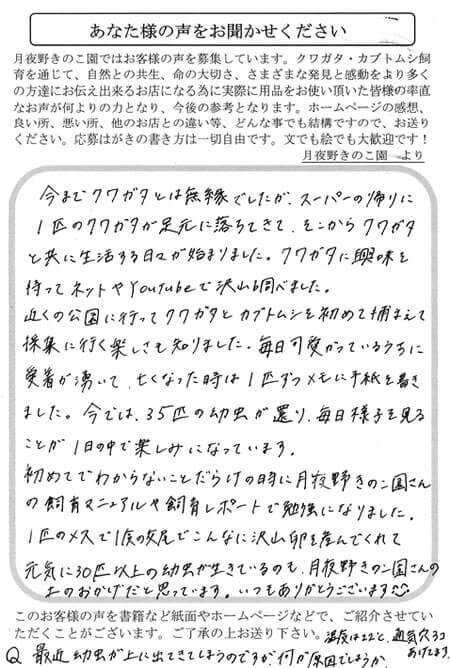 あなた様の声をお聞かせください
月夜野きのこ園ではお客様の声を募集しています。クワガタ・カブトムシ飼
育を通じて、自然との共生、命の大切さ、さまざまな発見と感動をより多く
の方達にお伝え出来るお店になる為に実際に用品をお使い頂いた皆様の率直
なお声が何よりの力となり、今後の参考となります。ホームページの感想、
良い所、悪い所、他のお店との違い等、どんな事でも結構ですので、お送り
ください。応募はがきの書き方は一切自由です。文でも絵でも大歓迎です！
月夜野きのこ園　より
今までクワガタとは無縁でしたが、スーパーの帰りに
1匹のクワガタが足元に落ちてきて、そこからクワガタ
と共に生活する日々が始まりました。クワガタに興味を
持ってネットやYoutubeで沢山調べました。
近くの公園に行ってクワガタとカブトムシを初めて捕まえて
採集に行く楽しさも知りました。毎日可愛がっているうちに
愛着が湧いて、亡くなった時は1匹ずつメモに手紙を書き
ました。今では、35匹の幼虫が還り、毎日様子を見る
ことが1日の中で楽しみになっています。
初めてでわからないことだらけの時に月夜野きのこ園さん
の飼育マニュアルや飼育レポートで勉強になりました。
1匹のメスで1度の交尾でこんなに沢山卵を産んでくれて
元気に30匹以上の幼虫が生きているのも、月夜野きのこ園さんの
土のおかげだと思っています。いつもありがとうございます
このお客様の声を書籍など紙面やホームページなどで、ご紹介させてい
ただくことがございます。ご了承の上お送り下さい。温度は22℃、通気穴3コ
あけてます。
Q 最近幼虫が上に出てきてしまうのですが何が原因でしょうか。